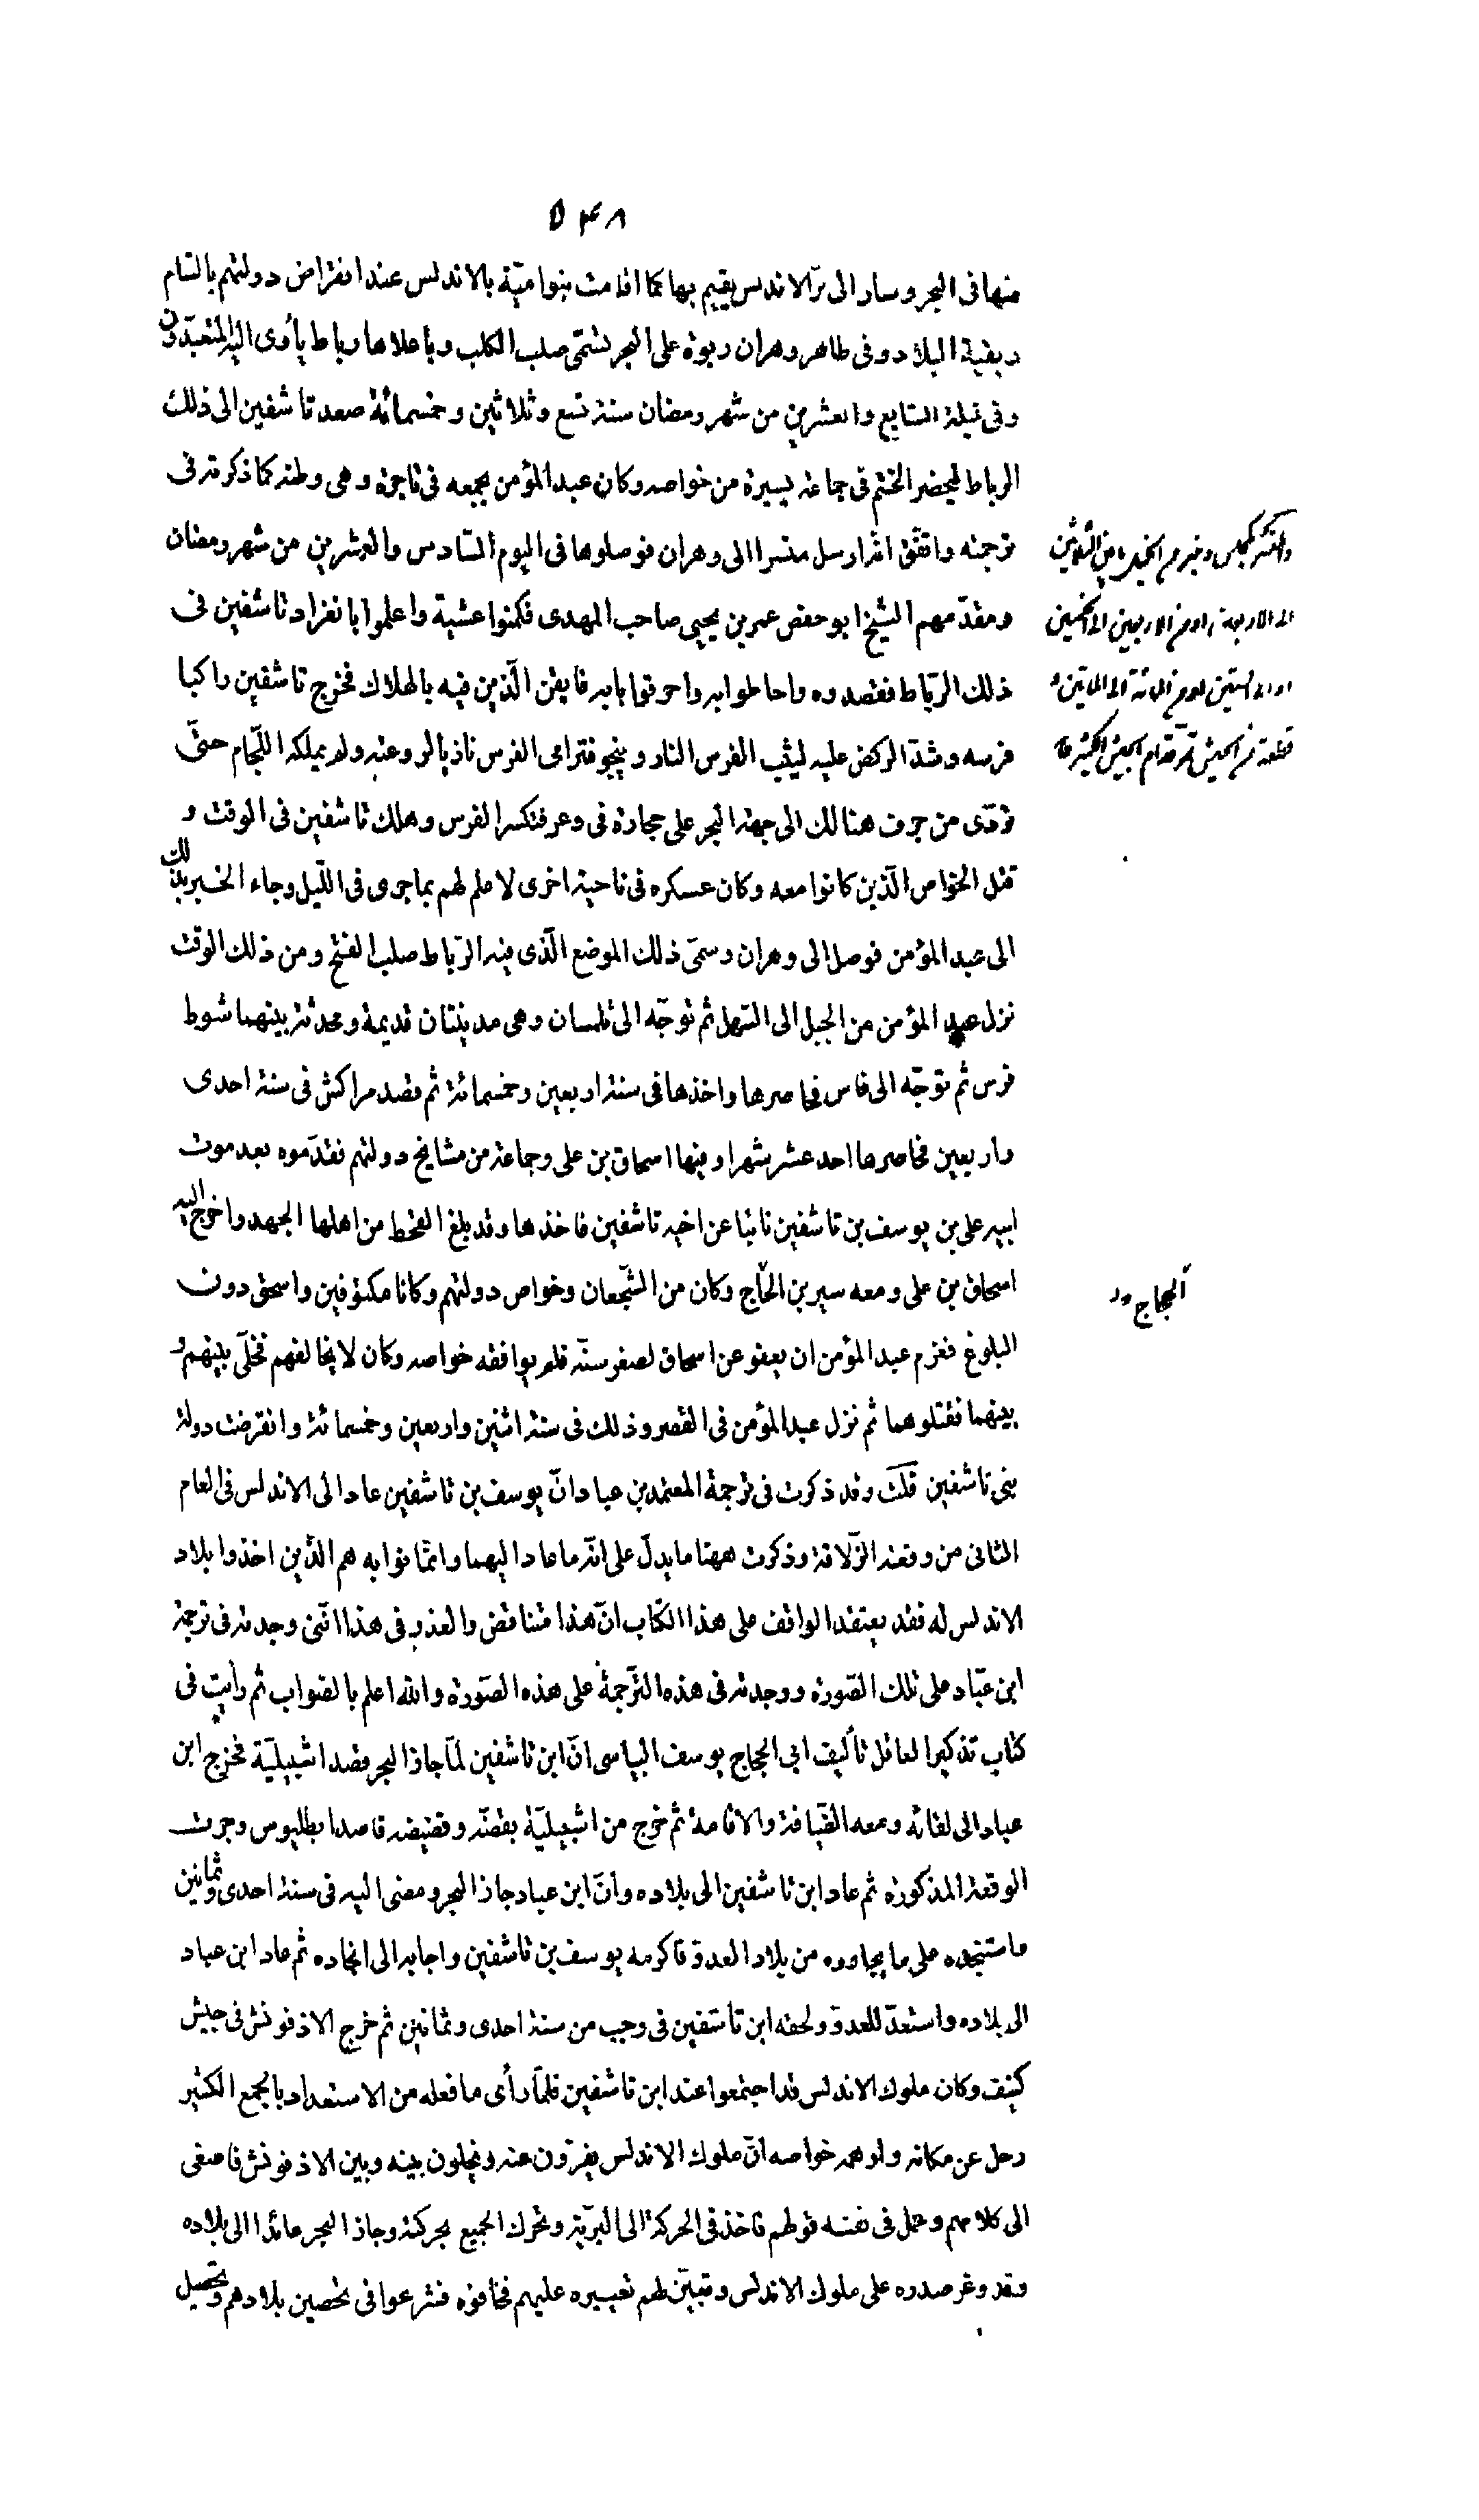 ٥٤٨
منها فى البحر وسار الى برّ الاندلس يقيم بها كما اقامت بنوا ميّة بالاندلس عند انقراض دولتهم بالشام
وبقية البلاد وفى ظاهر وهران ربوة على البحر تسمّى صلب الكلب وباعلاها رباط يأوى اليه المتعبّدون
وفى ليلة السابع والعشرين من شهر رمضان سنة تسع وثلاثين وخمسمائة صعد تاشفين الى ذلك
الرباط ليحضر الختم فى جماعة يسيرة من خواصه وكان عبد المؤمن بجمعه فى تاجرة وهى وطنه كما ذكرته فى
ترجمته واتّفق انّه ارسل منسرا الى وهران فوصلوها فى اليوم السّادس والعشرين من شهر رمضان
ومقدّمهم الشّيخ ابو حفص عمر بن يحيى صاحب المهدى فكمنوا عشية واعلموا بانفراد تاشفين فى
ذلك الرّباط فقصدوه واحاطوا به واحرقوا بابه فايقن الّذين فيه بالهلاك فخرج تاشفين راكبا
فرسه وشدّ الركض عليه ليثب الفرس النار وينجو فترامى الفرس نازيا لروعته ولم يملكه اللّجام حتّى
تردّى من جرف هنالك الى جهة البحر على حجارة فى وعر فتكسر الفرس وهلك تاشفين فى الوقت و
قتل الخواص الّذين كانوا معه وكان عسكره فى ناحية اخرى لا علم لهم بما جرى فى اللّيل وجاء الخبر بذلك
الى عبد المؤمن فوصل الى وهران وسمّى ذلك الموضع الّذى فيه الرّباط صلب الفتح ومن ذلك الوقت
نزل عبد المؤمن من الجبل الى السّهل ثم توجّه الى تلمسان وهى مدينتان قديمة ومحدثة بينهما شوط
فرس ثم توجّه الى فاس فحاصرها واخذها فى سنة اربعين وخمسمائة ثم قصد مراكش فى سنة احدى
واربعين فحاصرها احد عشر شهرا وفيها اسحاق بن على وجماعة من مشايخ دولتهم فقدّموه بعد موت
ابيه على بن يوسف بن تاشفين نائبا عن اخيه تاشفين فاخذها وقد بلغ القحط من اهلها الجهد واخرج اليه
اسحاق بن على ومعه سير بن الحّاج وكان من الشّجعان وخواص دولتهم وكانا مكتوفين واسحق دون
البلوغ فعزم عبد المؤمن ان يعفو عن اسحاق لصغر سنّه فلم يوافقه خواصه وكان لا يخالفهم فخلّى بينهم و
بينهما فقتلوهما ثم نزل عبد المؤمن فى القصر وذلك فى سنة اثنين واربعين وخمسمائة وانقرضت دولة
بنى تاشفين قلت وقد ذكرت فى ترجمة المعتمد بن عباد انّ يوسف بن تاشفين عاد الى الاندلس فى العام
الثانى من وقعة الزّلاقة وذكرت ههنا ما يدلّ على انّه ما عاد اليهما وانّما نوابه هم الّذين اخذوا بلاد
الاندلس له فقد يعتقد الواقف على هذا الكتاب انّ هذا متناقض والعذر فى هذا اننى وجدته فى ترجمة
ابن عبّاد على تلك الصّورة ووجدته فى هذه الترّجمة على هذه الصّورة والله اعلم بالصّواب ثم رأيت فى
كتاب تذكير العاقل تأليف ابى الحجاج يوسف البياسى انّ ابن تاشفين لمّا جاز البحر قصد اشبيليّة فخرج ابن
عباد الى لقائه ومعه الضّيافة والاقامة ثم خرج من اشبيليّة بقضّه وقضيضه قاصدا بطليوس وجرت
الوقعة المذكورة ثم عاد ابن تاشفين الى بلاده وانّ ابن عباد جاز البحر ومضى اليه فى سنة احدى وثمانين
فاستنجده على ما يجاوره من بلاد العدوّ فاكرمه يوسف بن تاشفين واجابه الى انجاده ثم عاد ابن عباد
الى بلاده واستعدّ للعدوّ ولحقه ابن تاشفين فى رجب من سنة احدى وثمانين ثم خرج الاذفونش فى جيش
كثيف وكان ملوك الاندلس قد اجتمعوا عند ابن تاشفين فلمّا رأى ما فعله من الاستعداد بالجمع الكثير
رحل عن مكانه واوهمه خواصه انّ ملوك الاندلس يفرّون عنه ويخلون بينه وبين الاذفونش فاصغى
الى كلامهم وعمل فى نفسه قولهم فاخذ فى الحركة الى البرّيّة وتحرك الجميع بحركته وجاز البحر عائدا الى بلاده
وقد وغر صدره على ملوك الاندلس وتبيّن لهم تغييره عليهم فخافوه فشرعوا فى تحصين بلادهم وتحصيل
والمنسر كمجلس ومنبر من الخيل ما بين الثلاثين
الى الاربعين او من الاربعين الى الخمسين
او الى الستين او من المائة الى المائتين و
قطعة من الجيش تمرّ قدام الجيش الكثير
الحجاج